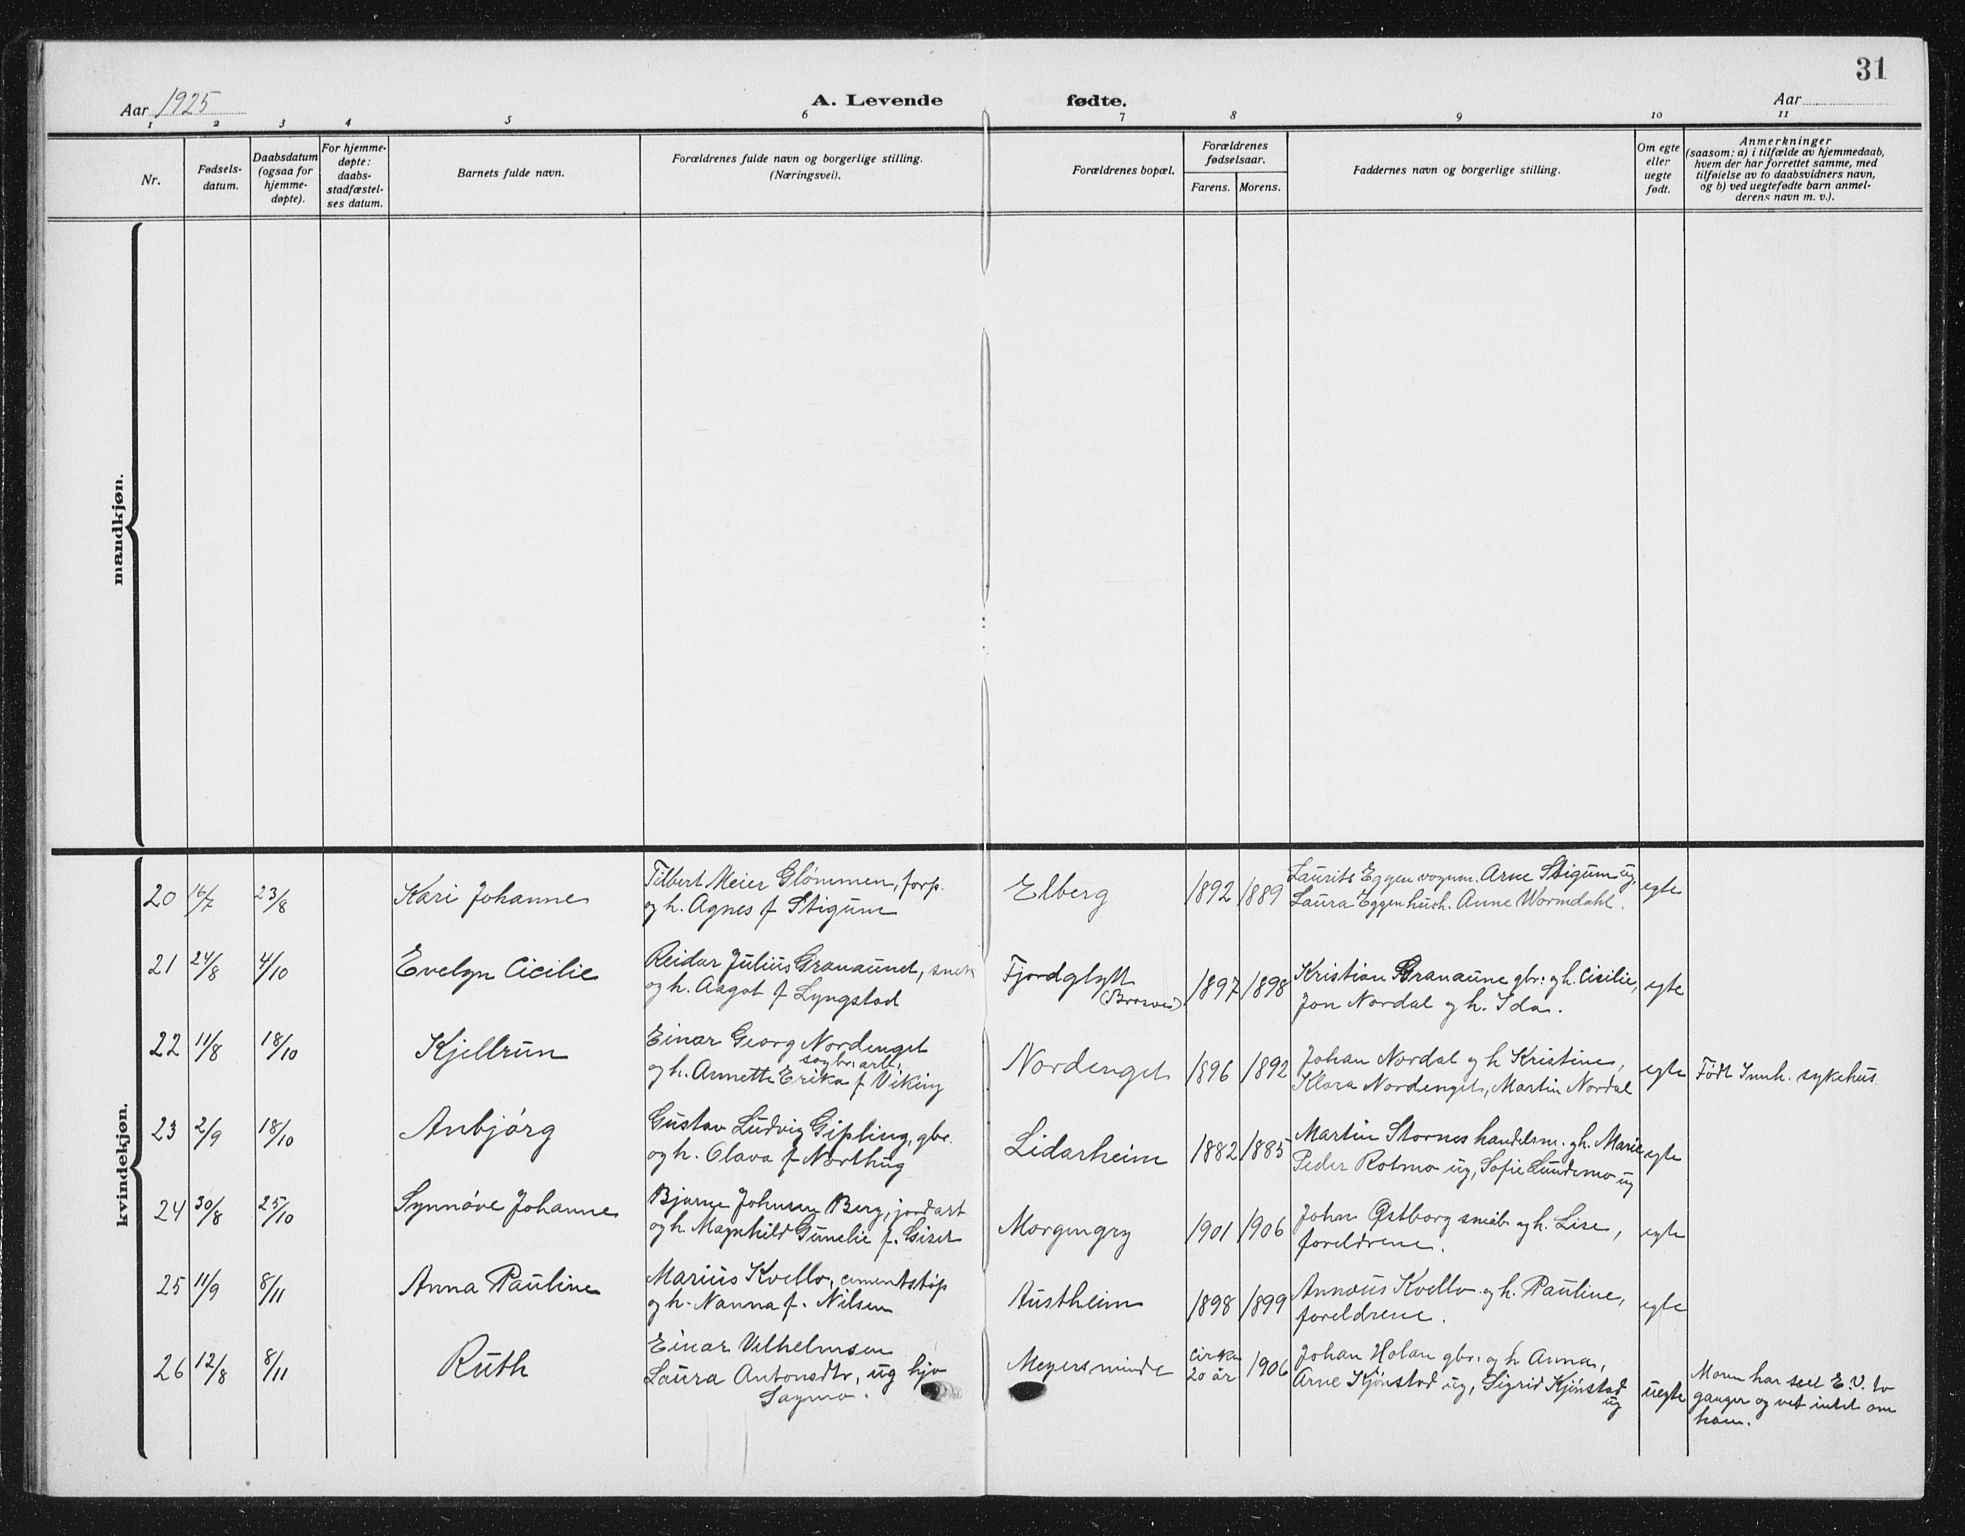 31
Aar 1925
A. Levende fødte.
Aar
1 2 3 4 5 6 7 8 9 10 11
Nr.
Fødsels-
datum.
Daabsdatum
(ogsaa for
hjemme-
døpte).
For hjemme-
døpte:
daabs-
stadfæstel-
ses datum.
Barnets fulde navn.
Forældrenes fulde navn og borgerlige stilling.
(Næringsvei).
Forældrenes bopæl.
Forældrenes
fødselsaar.
Farens. Morens.
Faddernes navn og borgerlige stilling.
Om egte
eller
uegte
født.
Anmerkninger
(saasom: a) i tilfælde av hjemmedaab,
hvem der har forrettet samme, med
tilføielse av to daabsvidners navn,
og b) ved uegtefødte barn anmel-
derens navn m. v.).
mandkjøn.
kvindekjøn.
20 16/7 23/8 Kari Johanne
Tilbert Meier Glømmen, forp.
og h. Agnes f Stigum
Elberg 1892 1889
Laurits Eggen vognm. Arne Stigum ug,
Laura Eggen hush. Anne Wormdahl.
egte
21 24/8 4/10 Evelyn Cicilie
Reidar Julius Granaunet, snek
og h. Aagot f Lyngstad
Fjordglytt
1897 1898
Kristian Granaune gbr. og h. Cicilie,
Jon Nordal og h. Ida.
egte
22 11/8 18/10 Kjellrun
Einar Georg Nordenget
sagbr.arb.
og h. Annette Erika f Viking
Nordenget 1896 1892
Johan Nordal og h Kristine,
Klara Nordenget, Martin Nordal
egte
Født Innh. sykehus
23 2/9 18/10 Anbjørg
Gustav Ludvig Gipling, gbr.
og h. Olava f Northug
Lidarheim 1882 1885
Martin Stornes handelsm. og h. Marie
Peder Rotmo ug, Sofie Lundemo ug
egte
24 30/8 25/10 Synnøve Johanne
Bjarne Johnsen Berg, jordarb
og h. Magnhild Gunelie f.
Morgengry 1901 1906
John Østborg og h. Lise,
foreldrene.
egte
25 11/9 8/11 Anna Pauline
Marius Kvello, cementstøp
og h. Nanna f. Nilsen
Austheim 1898 1899
Annæus Kvello og h. Pauline,
foreldrene.
egte
26 12/8 8/11 Ruth
Einar Vilhelmsen
Laura Antonsdtr, ug
Sagmo.
Meyersminde
cirka
20 år
1906
Johan Holan gbr. og h Anna,
Arne Kjønstad ug, Sigrid Kjønstad
ug
uegte
Moren har seet E.V. to
ganger og vet intet om
ham.